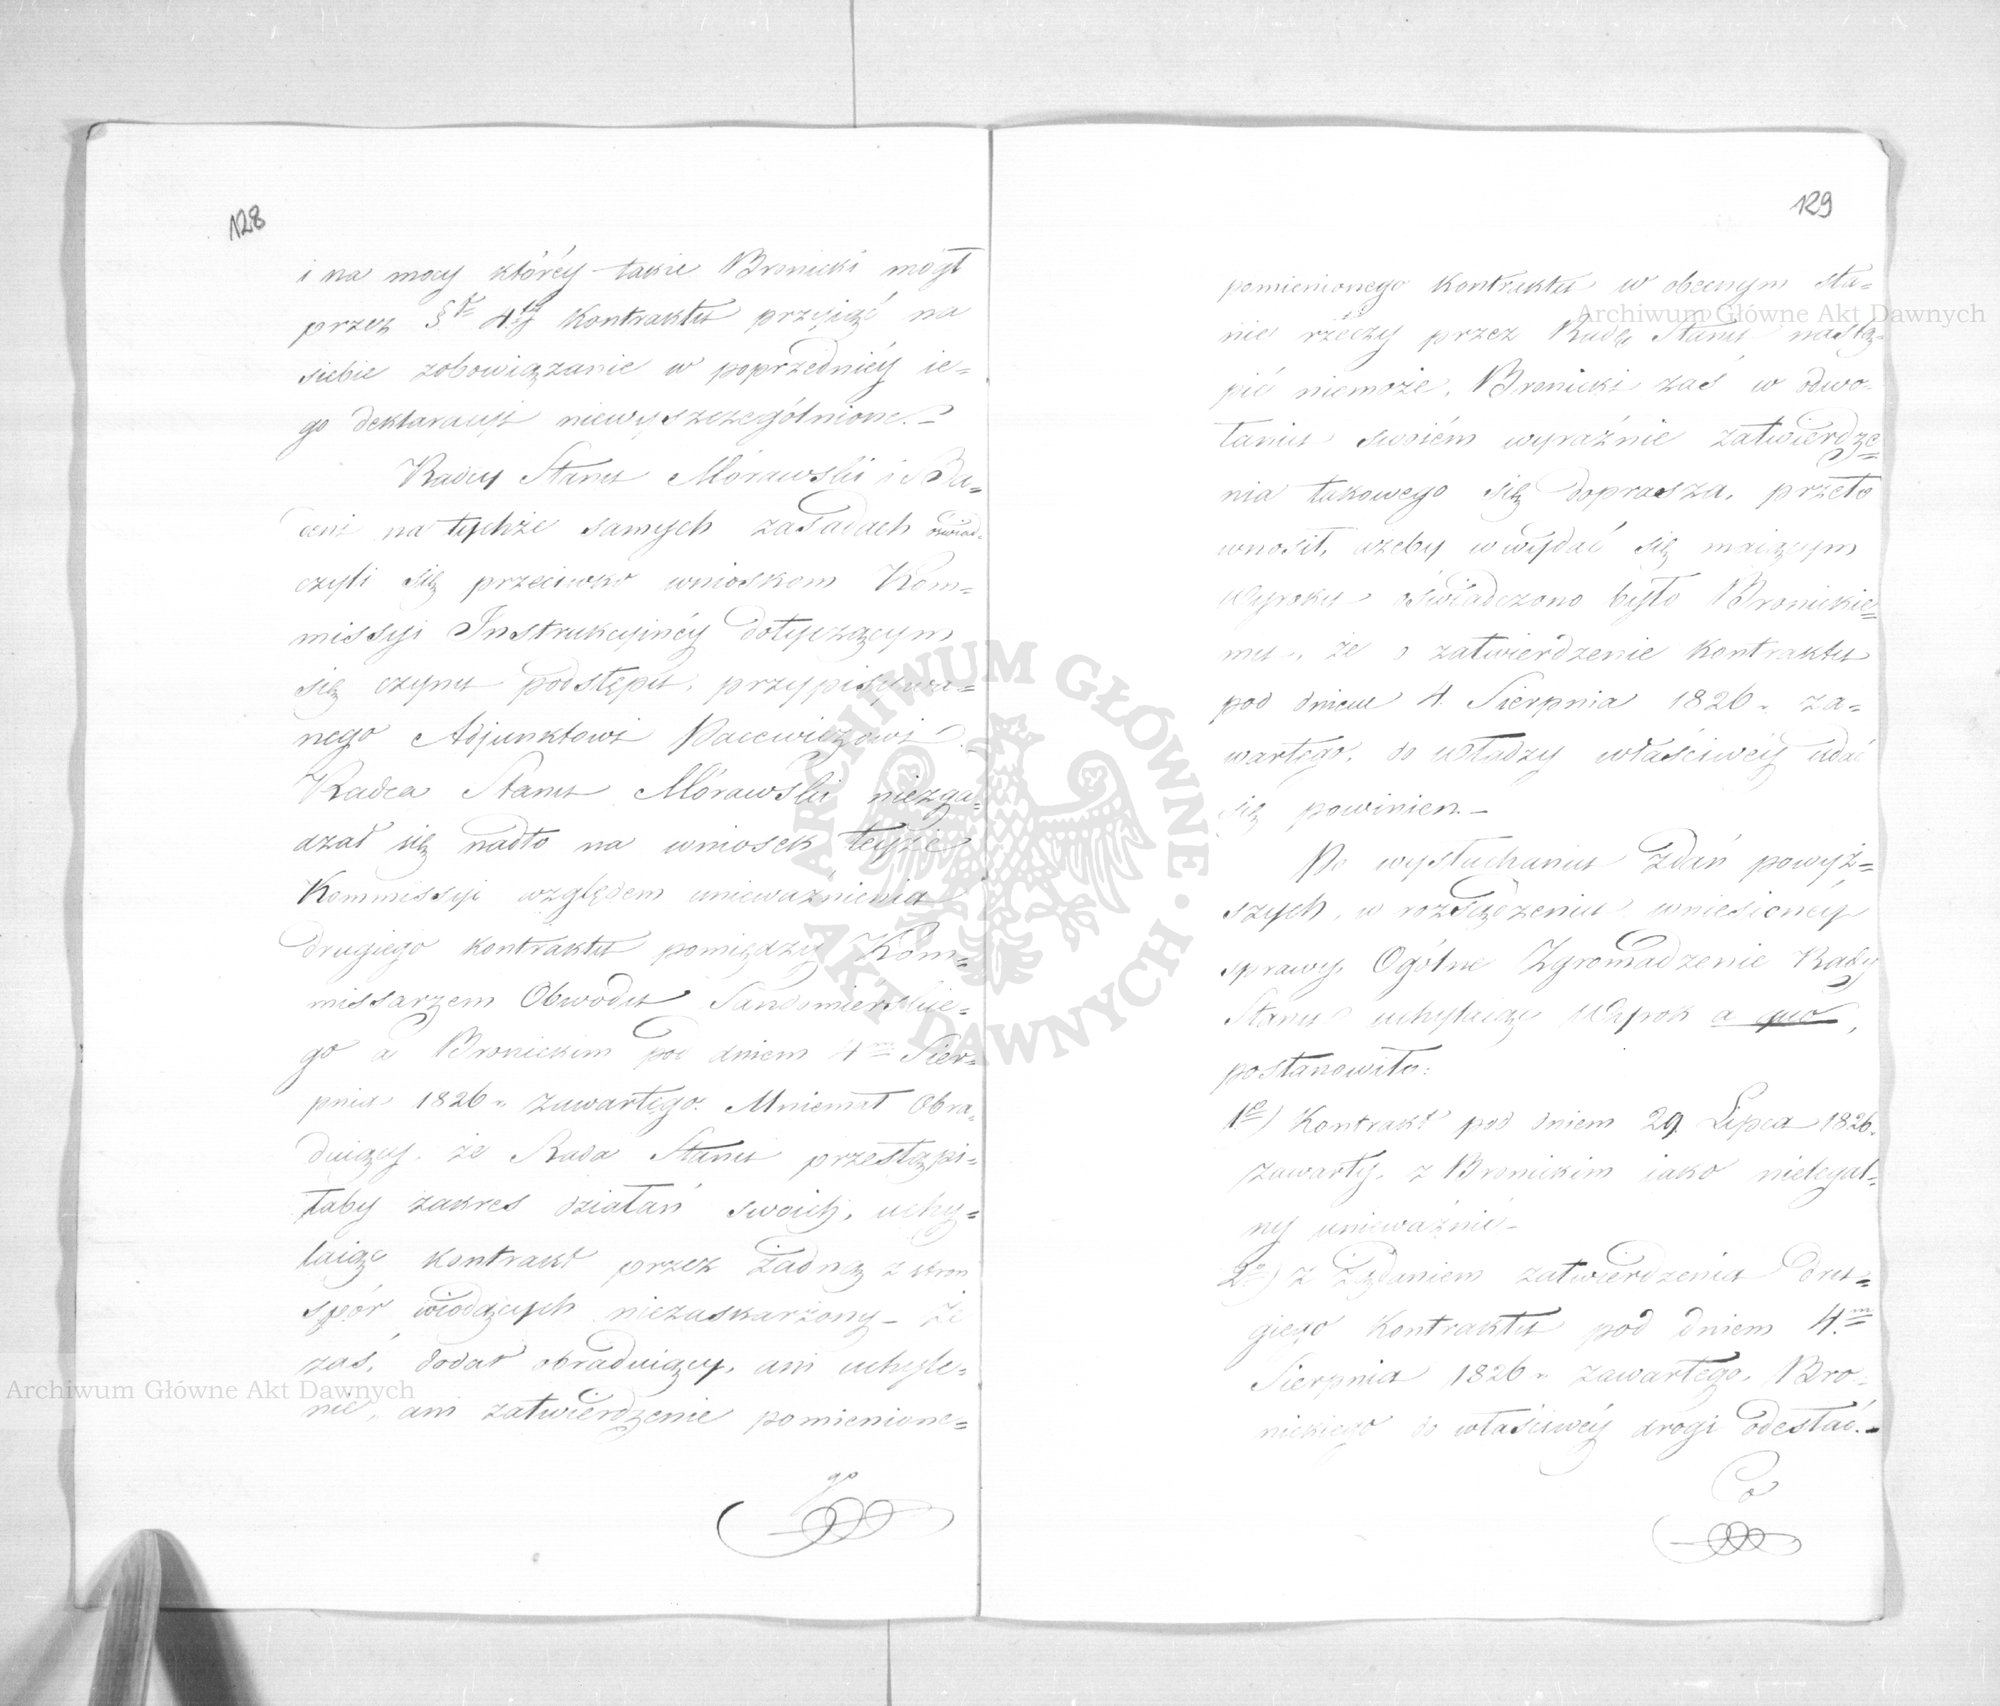 128
i na mocy któréy takie Bronicki mógł
przez § 4ty Kontraktu przyiąć na
siebie zobowiązanie w poprzedniéy ie=
go deklaracyi niewyszczególnione.–
Radcy Stanu Morawski i Ba=
deni na tychże samych zasadach oświad=
czyli się przeciwko wnioskom Kom=
missyi Instrukcyinéy dotyczącym
się czynu podstępu, przypisywa=
nego Adjunktowi Pacewiczowi.
Radca Stanu Morawski niezga=
dzał się nadto na wniosek teyże
Kommissyi względem unieważnienia
drugiego kontraktu pomiędzy Kom=
missarzem Obwodu Sandomierskie=
go a Bronickim pod dniem 4m Sier=
pnia 1826 r. zawartego. Mniemał Obra=
duiący, że Rada Stanu przestąpi=
łaby zakres działań swoich, uchy=
laiąc kontrakt przez żadną z stron
spór wiodących niezaskarżony – że
zaś, dodał obraduiący, ani uchyle=
nie, ani zatwierdzenie pomienione=
go
129
pomienionego Kontraktu w obecnym sta=
nie rzeczy przez Radę Stanu nastą=
pić niemoże, Bronicki zaś w odwo=
łaniu swoiém wyraźnie zatwierdze=
nia takowego się doprasza, przeto
wnosił, ażeby w wydać się maiącym
Wyroku oświadczono było Bronickie=
mu, że o zatwierdzenie Kontraktu
pod dniem 4 Sierpnia 1826 r. za=
wartego, do władzy właściwéy udać
się powinien.–
Po wysłuchaniu zdań powyż=
szych, w rozsądzeniu wniesionéy
sprawy, Ogólne Zgromadzenie Rady
Stanu uchylaiąc Wyrok a quo,
postanowiło:
1e) Kontrakt pod dniem 29 Lipca 1826 r.
zawarty, z Bronickim iako nielegal=
ny unieważnić –
2e) z żądaniem zatwierdzenia dru=
giego Kontraktu pod dniem 4m
Sierpnia 1826 r. zawartego, Bro=
nickiego do właściwéy drogi odesłać.–
Co
Archiwum Główne Akt Dawnych
Archiwum Główne Akt Dawnych
ARCHIWUM GŁÓWNE AKT DAWNYCH